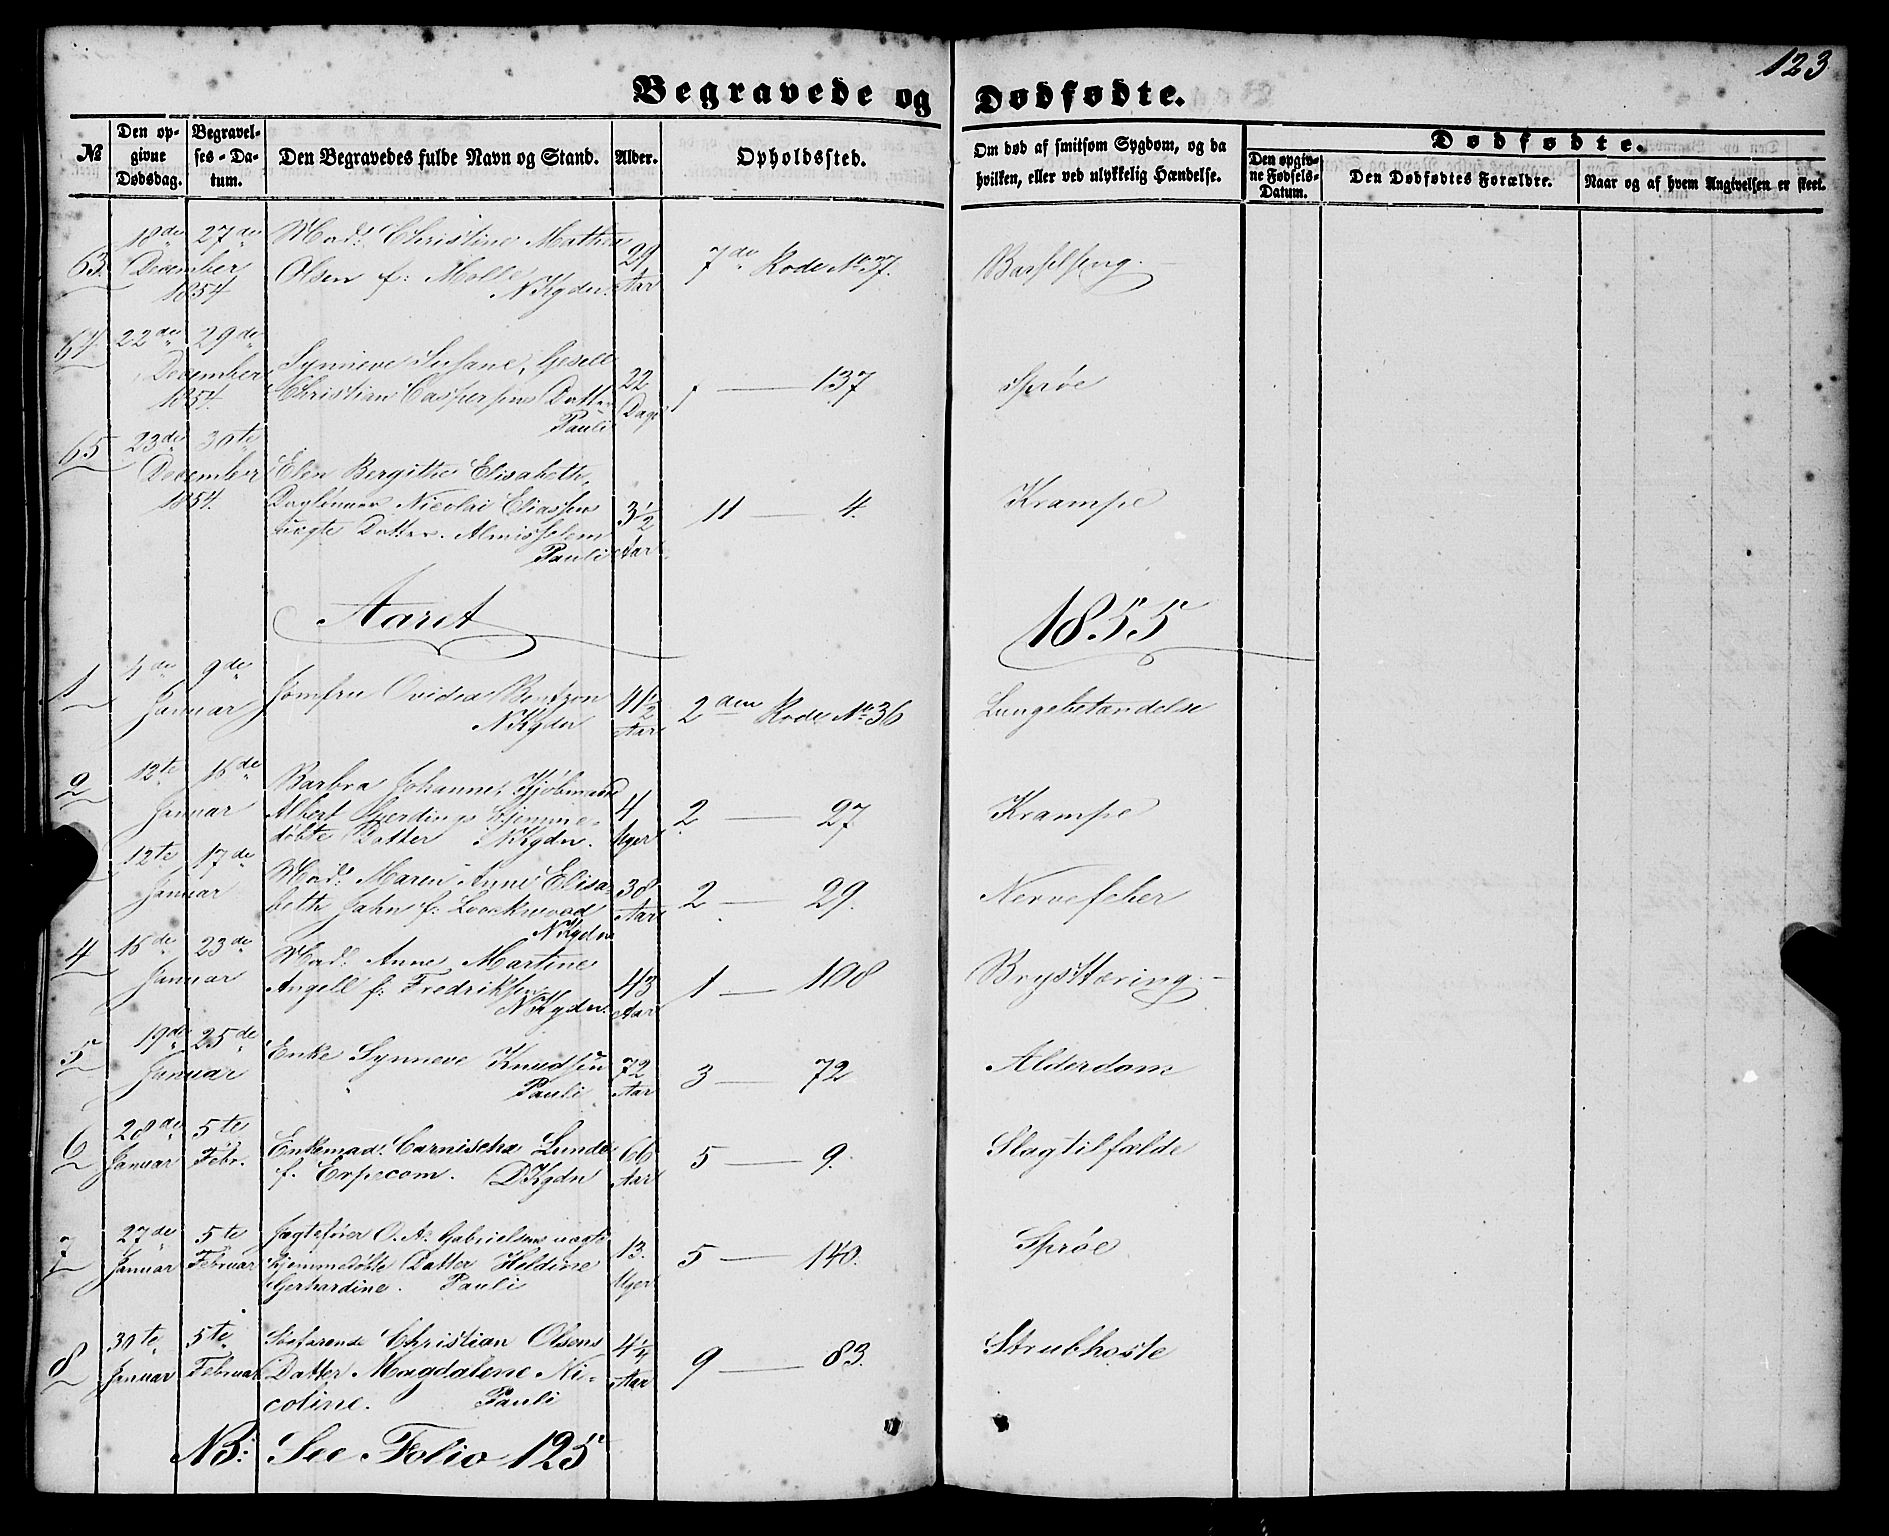 123
Begravede og Dødfødte.
№
Den opgivne Dødsdag.
Begravelses-Datum.
Den Begravedes fulde Navn og Stand.
Alder.
Opholdssted.
Om død af smitsom Sygdom, og da hvilken, eller ved ulykkelig Hændelse.
Dødfødte.
Den opgivne Fødsels-Datum.
Den Dødfødtes Forældre.
Naar og af hvem Angivelsen er skeet.
63. 18de 27de December 1854
Mad: Christine Mathea
Olsen f: Molle NKgdn.
29 Aar
7de Rode № 37.
Barselseng.
64. 22de 29de December 1854.
Synneve Susane, Gesell
Christian Caspersens Datter
Pauli
22 Dage
137
Sprøe
65 23de 30te December 1854.
Elen Bergithe Elisabeth,
Nicolai Eliassen
uægte Datter.
Pauli
3½ Aar
11 — 4.
Krampe
Aaret 1855
1 4de 9de Januar
Jomfru Ovidea Bentzon
NKgdn
41½ Aar
2den Rode № 36
Lungebetændelse
2 12te 16de Januar
Barbra Johanne, Kjøbmand
Albert Gjerdings hjemme-
døbte Datter NKgdn.
4 Uger
2 — 27
Krampe
12te 17de Januar
Mad: Maren Anne Elisa-
beth Jahn f:
NKgdn
38 Aar
2 — 29.
Nervefeber
4 16de 23de Januar
Mad: Anne Martine
Angell f: Fredriksen
NKgdn.
43 Aar
1 — 108
Brysttæring.
5 19de 25de Januar
Enke Synneve Knudsen
Pauli
72 Aar
3 — 72
Alderdom
6 28de Januar 5te Febr.
Enkemad: Carnischa Lunde
f. Erpecom. DKgdn
66 Aar
5 — 9.
Slagtilfælde
7 27de Januar 5te Februar
Jægtefører O. A. Gabrielsens uægte
hjemmedøbte Datter Heldine
Gjerhardine. Pauli
13. Uger
5 — 140.
Sprøe
8 30te Januar 5te Februar
Søefarende Christian Olsens
Datter Magdalene Ni-
coline. Pauli
4¼ Aar
9 — 83.
Strubhoste
NB: See Folio 125